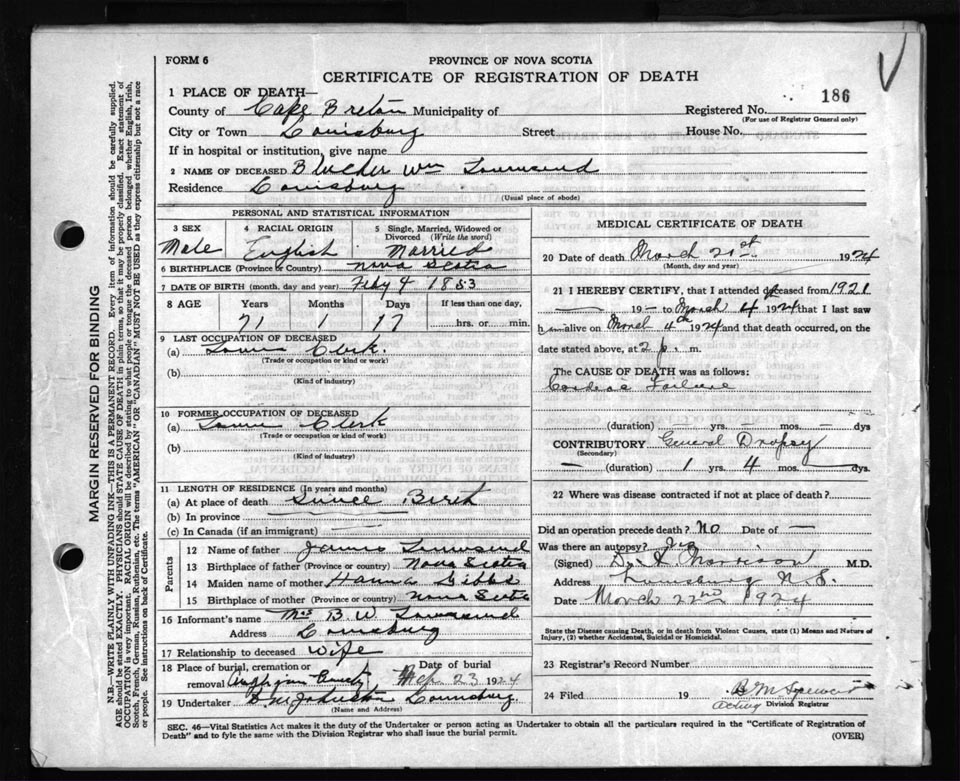 FORM 6
PROVINCE OF NOVA SCOTIA
CERTIFICATE OF REGISTRATION OF DEATH
1 PLACE OF DEATH—
186
County of Cape Breton Municipality of
Registered No.
(For use of Registrar General only)
City or Town Louisburg Street House No.
If in hospital or institution, give name
2 NAME OF DECEASED Blucher Wm Townsend
Residence Louisburg
(Usual place of abode)
PERSONAL AND STATISTICAL INFORMATION
3 SEX 4 RACIAL ORIGIN 5 Single, Married, Widowed or
Divorced (Write the word)
Male English Married
6 BIRTHPLACE (Province or Country) Nova Scotia
7 DATE OF BIRTH (month, day and year) Feby 4 1853
8 AGE Years Months Days If less than one day,
71 1 17 hrs. or min.
9 LAST OCCUPATION OF DECEASED
(a) Town Clerk.
(Trade or occupation or kind or work)
(b)
(Kind of industry)
10 FORMER OCCUPATION OF DECEASED
(a) Town Clerk
(Trade or occupation or kind of work)
(b)
(Kind of industry)
11 LENGTH OF RESIDENCE (In years and months)
(a) At place of death Since Birth
(b) In province
(c) In Canada (if an immigrant)
Parents
12 Name of father James Townsend
13 Birthplace of father (Province or country) Nova Scotia
14 Maiden name of mother Gibbs
15 Birthplace of mother (Province or country) Nova Scotia
16 Informant's name Mrs B W Townsend
Address Louisburg
17 Relationship to deceased Wife
18 Place of burial, cremation or Date of burial
removal 23 1924
19 Undertaker Louisburg
(Name and Address)
MEDICAL CERTIFICATE OF DEATH
20 Date of death March 21st 1924
(Month, day and year)
21 I HEREBY CERTIFY, that I attended deceased from 1921
— 19 — to March 4 1924 that I last saw
him alive on March 4th 1924 and that death occurred, on
date stated above, at 2 p. m.
The CAUSE OF DEATH was as follows:
Cardiac Failure
(duration) — yrs. — mos. — dys
CONTRIBUTORY General Dropsy
(Secondary)
— (duration) 1 yrs. 4 mos. — dys.
22 Where was disease contracted if not at place of death?
Did an operation precede death? No Date of —
Was there an autopsy?
(Signed) Morrison M.D.
Address Louisburg N.S.
Date March 22nd 1924
State the Disease causing Death, or in death from Violent Causes, state (1) Means and Nature of
Injury, (2) whether Accidental, Suicidal or Homicidal.
23 Registrar's Record Number
24 Filed 19
Acting Division Registrar
SEC. 46—Vital Statistics Act makes it the duty of the Undertaker or person acting as Undertaker to obtain all the particulars required in the "Certificate of Registration of
Death" and to fyle the same with the Division Registrar who shall issue the burial permit.
(OVER)
MARGIN RESERVED FOR BINDING
N.B.—WRITE PLAINLY WITH UNFADING INK—THIS IS A PERMANENT RECORD. Every item of information should be carefully supplied.
AGE should be stated EXACTLY. PHYSICIANS should STATE CAUSE OF DEATH in plain terms, so that it may be properly classified. Exact statement of
OCCUPATION is very important. RACIAL ORIGIN will be described by stating to what people or tongue the deceased person belonged, whether English, Irish,
Scotch, French, German, Russian, Ruthenian, etc. The terms "AMERICAN" OR "CANADIAN" MUST NOT BE USED as they express citizenship but not a race
of people. See instructions on back of Certificate.